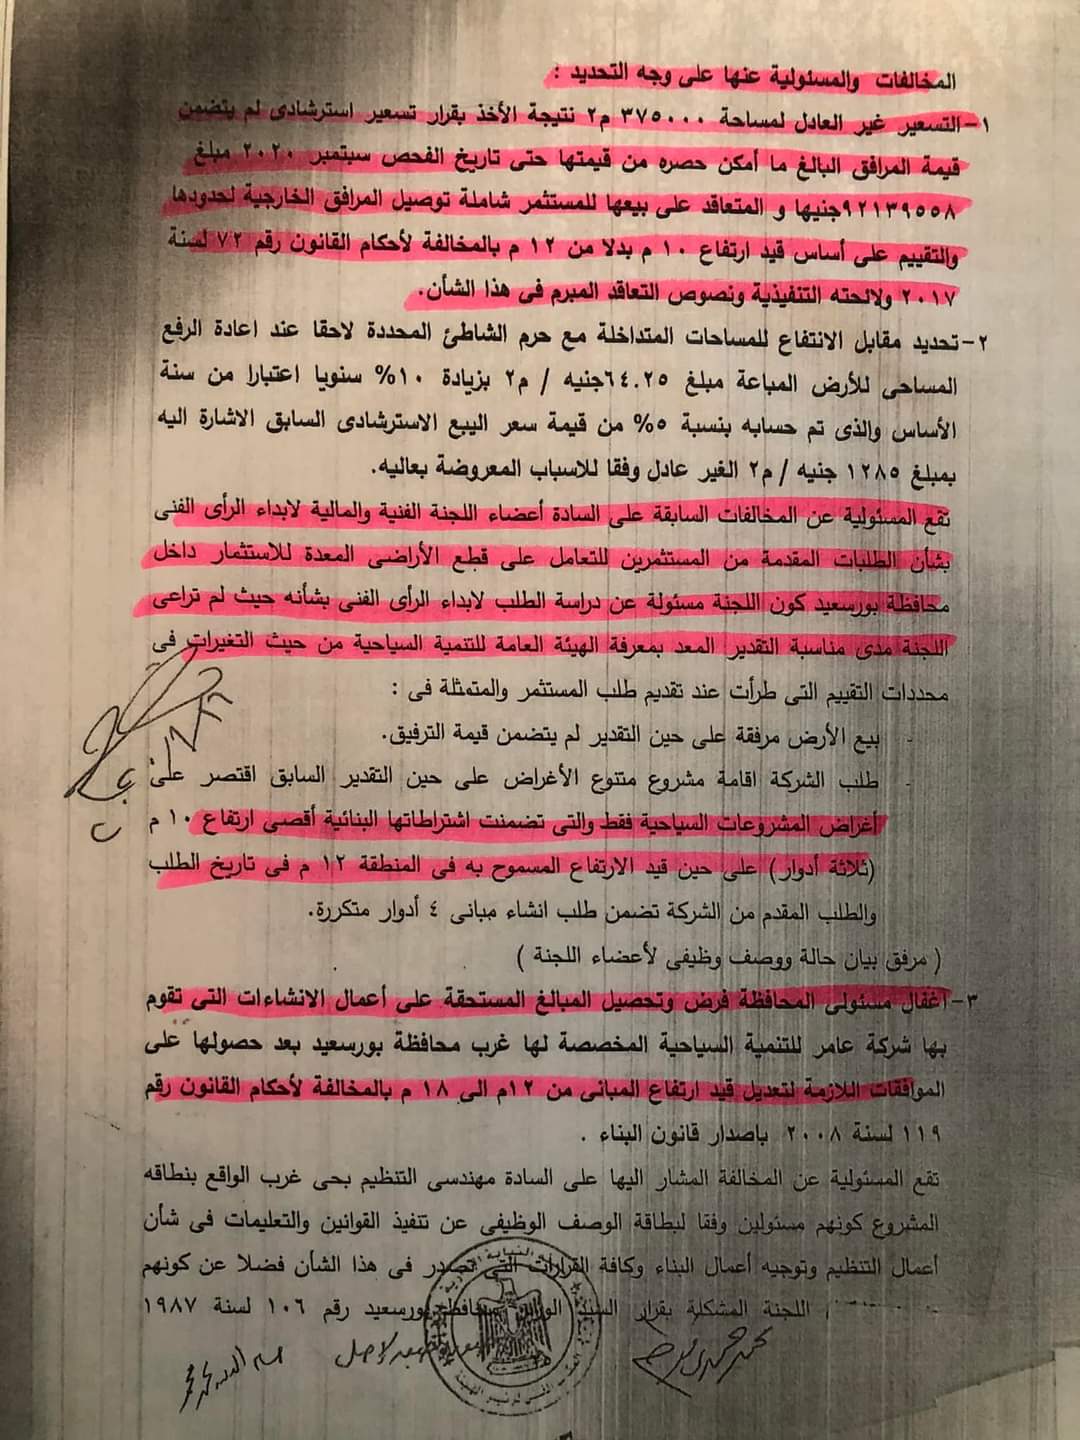 المخالفات والمسئولية عنها على وجه التحديد :
١-التسعير غير العادل لمساحة ٣٧٥٠٠٠ م٢ نتيجة الأخذ بقرار تسعير استرشادى لم يتضمن
قيمة المرافق البالغ ما أمكن حصره من قيمتها حتى تاريخ الفحص سبتمبر ٢٠٢٠ مبلغ
٩٢١٣٩٥٥٨جنيها و المتعاقد على بيعها للمستثمر شاملة توصيل المرافق الخارجية لحدودها
والتقييم على أساس قيد ارتفاع ١٠ م بدلا من ١٢ م بالمخالفة لأحكام القانون رقم ٧٢ لسنة
٢٠١٧ ولائحته التنفيذية ونصوص التعاقد المبرم فى هذا الشأن.
٢-تحديد مقابل الانتفاع للمساحات المتداخلة مع حرم الشاطئ المحددة لاحقا عند اعادة الرفع
المساحى للأرض المباعة مبلغ ٦٤.٢٥جنيه / م٢ بزيادة ١٠% سنويا اعتبارا من سنة
الأساس والذى تم حسابه بنسبة ٥% من قيمة سعر البيع الاسترشادى السابق الاشارة اليه
بمبلغ ١٢٨٥ جنيه / م٢ الغير عادل وفقا للاسباب المعروضة بعاليه.
تقع المسئولية عن المخالفات السابقة على السادة أعضاء اللجنة الفنية والمالية لابداء الرأى الفنى
بشأن الطلبات المقدمة من المستثمرين للتعامل على قطع الأراضى المعدة للاستثمار داخل
محافظة بورسعيد كون اللجنة مسئولة عن دراسة الطلب لابداء الرأى الفنى بشأنه حيث لم تراعى
اللجنة مدى مناسبة التقدير المعد بمعرفة الهيئة العامة للتنمية السياحية من حيث التغيرات فى
محددات التقييم التى طرأت عند تقديم طلب المستثمر والمتمثلة فى :
- بيع الأرض مرفقة على حين التقدير لم يتضمن قيمة الترفيق.
- طلب الشركة اقامة مشروع متنوع الأغراض على حين التقدير السابق اقتصر على
أغراض المشروعات السياحية فقط والتى تضمنت اشتراطاتها البنائية أقصى ارتفاع ١٠ م
(ثلاثة أدوار) على حين قيد الارتفاع المسموح به فى المنطقة ١٢ م فى تاريخ الطلب
والطلب المقدم من الشركة تضمن طلب انشاء مبانى ٤ أدوار متكررة.
( مرفق بيان حالة ووصف وظيفى لأعضاء اللجنة )
٣-اغفال مسئولى المحافظة فرض وتحصيل المبالغ المستحقة على أعمال الانشاءات التى تقوم
بها شركة عامر للتنمية السياحية المخصصة لها غرب محافظة بورسعيد بعد حصولها على
الموافقات اللازمة لتعديل قيد ارتفاع المبانى من ١٢م الى ١٨ م بالمخالفة لأحكام القانون رقم
١١٩ لسنة ٢٠٠٨ باصدار قانون البناء .
تقع المسئولية عن المخالفة المشار اليها على السادة مهندسى التنظيم بحى غرب الواقع بنطاقه
المشروع كونهم مسئولين وفقا لبطاقة الوصف الوظيفى عن تنفيذ القوانين والتعليمات فى شأن
أعمال التنظيم وتوجيه أعمال البناء وكافة القرارات التى تصدر فى هذا الشأن فضلا عن كونهم
اللجنة المشكلة بقرار السيد الوزير محافظ بورسعيد رقم ١٠٦ لسنة ١٩٨٧